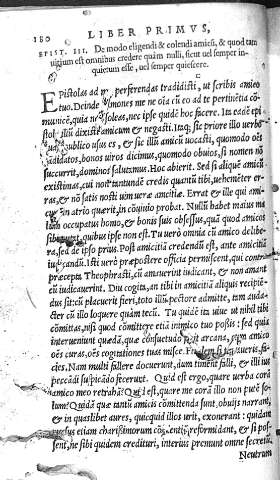 180 LIBER PRIMVS,
EPIST. III. De modo eligendi & colendi amicū, & quod tam
uitium est omnibus credere quàm nulli, sicut uel semper in-
quietum esse, uel semper quiescere.
Epistolas ad perferendas tradidisti, ut scribis amico
tuo. Deinde mones me ne oīa cū eo ad te pertinētia cō-
munice, quia nō soleas, nec ipse quidē hoc facere. Ita eadē epi-
stol illū dixisti amicum & negasti. Itaq; sic priore illo uerbo
publico usus es, & sic illū amicū uocasti, quomodo oēs
cādidatos, bonos uiros dicimus, quomodo obuios, si nomen nō
succurrit, dominos salutamus. Hoc abierit. Sed si aliquē amicū
existimas, cui nō tantundē credis quantū tibi, uehemēter er-
ras, & nō satis nosti uim ueræ amicitiæ. Errat & ille qui ami-
cum in atrio quærit, in cōuiuio probat. Nullū habet maius ma
lum occupatus homo, & bonis suis obsessus, quā quod amicos
sibi quibus ipse non est. Tu uerò omnia cū amico delibe-
ra, sed de ipso prius. Post amicitiā credendū est, ante amicitiā
iudicandū. Isti uerò præpostere officia permiscent, qui contra
præcepta Theophrasti, cū amauerint iudicant, & non amant
cū iudicauerint. Diu cogita, an tibi in amicitiā aliquis recipiē-
dus sit: cū placuerit fieri, toto illū pectore admitte, tam auda-
cter cū illo loquere quàm tecū. Tu quidē ita uiue ut nihil tibi
cōmittas, nisi quod cōmittere etiā inimico tuo possis: sed quia
interueniunt quædā, quæ consuetudo fecit arcana, cum amico
oēs curas, oēs cogitationes tuas misce. Fidelem si putaueris, fa-
cies. Nam multi fallere docuerunt, dum timent falli, & illi ius
peccādi suspicādo fecerunt. Quid est ergo, quare uerba corā
amico meo retrahā? Quid est, quare me corā illo non putē so-
lum? Quidā quæ tantū amicis cōmittenda sunt, obuijs narrant,
& in quaslibet aures, quicquid illos urit, exonerant: quidam
rursus etiam charissimorum cōscientiā reformidant, & si pos-
sent, ne sibi quidem credituri, interius premunt omne secretū.
Neutrum